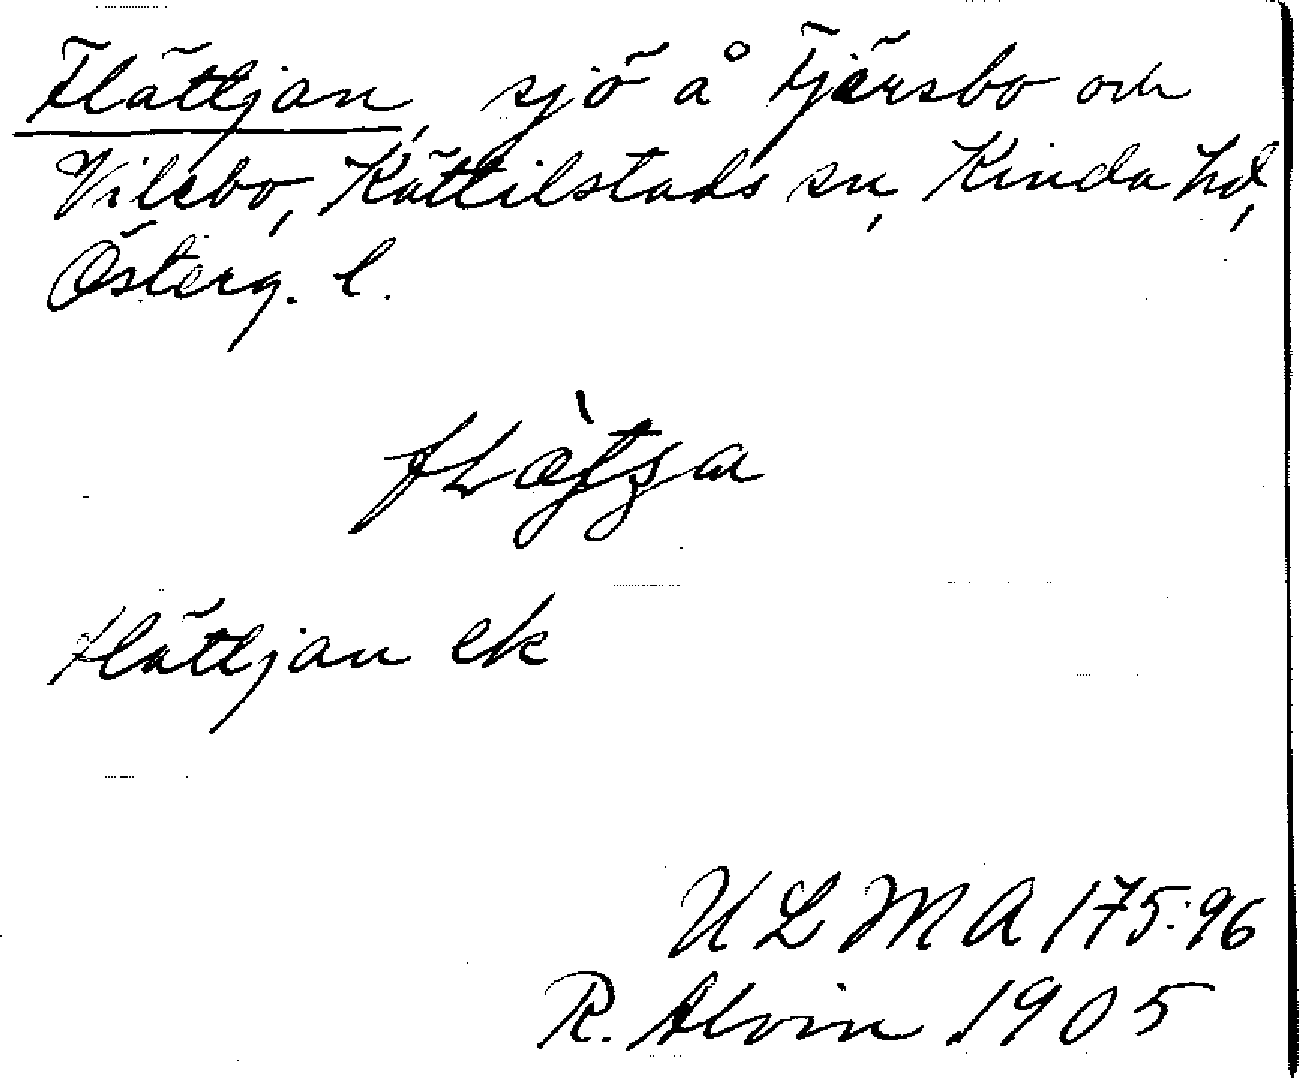 Flättjan, sjö å Fjärsbo och
Vilsbo, Kättilstads sn, Kinda hd,
Österg. l.
Flättjan ek
ULMA 175:96
R. Alvin 1905